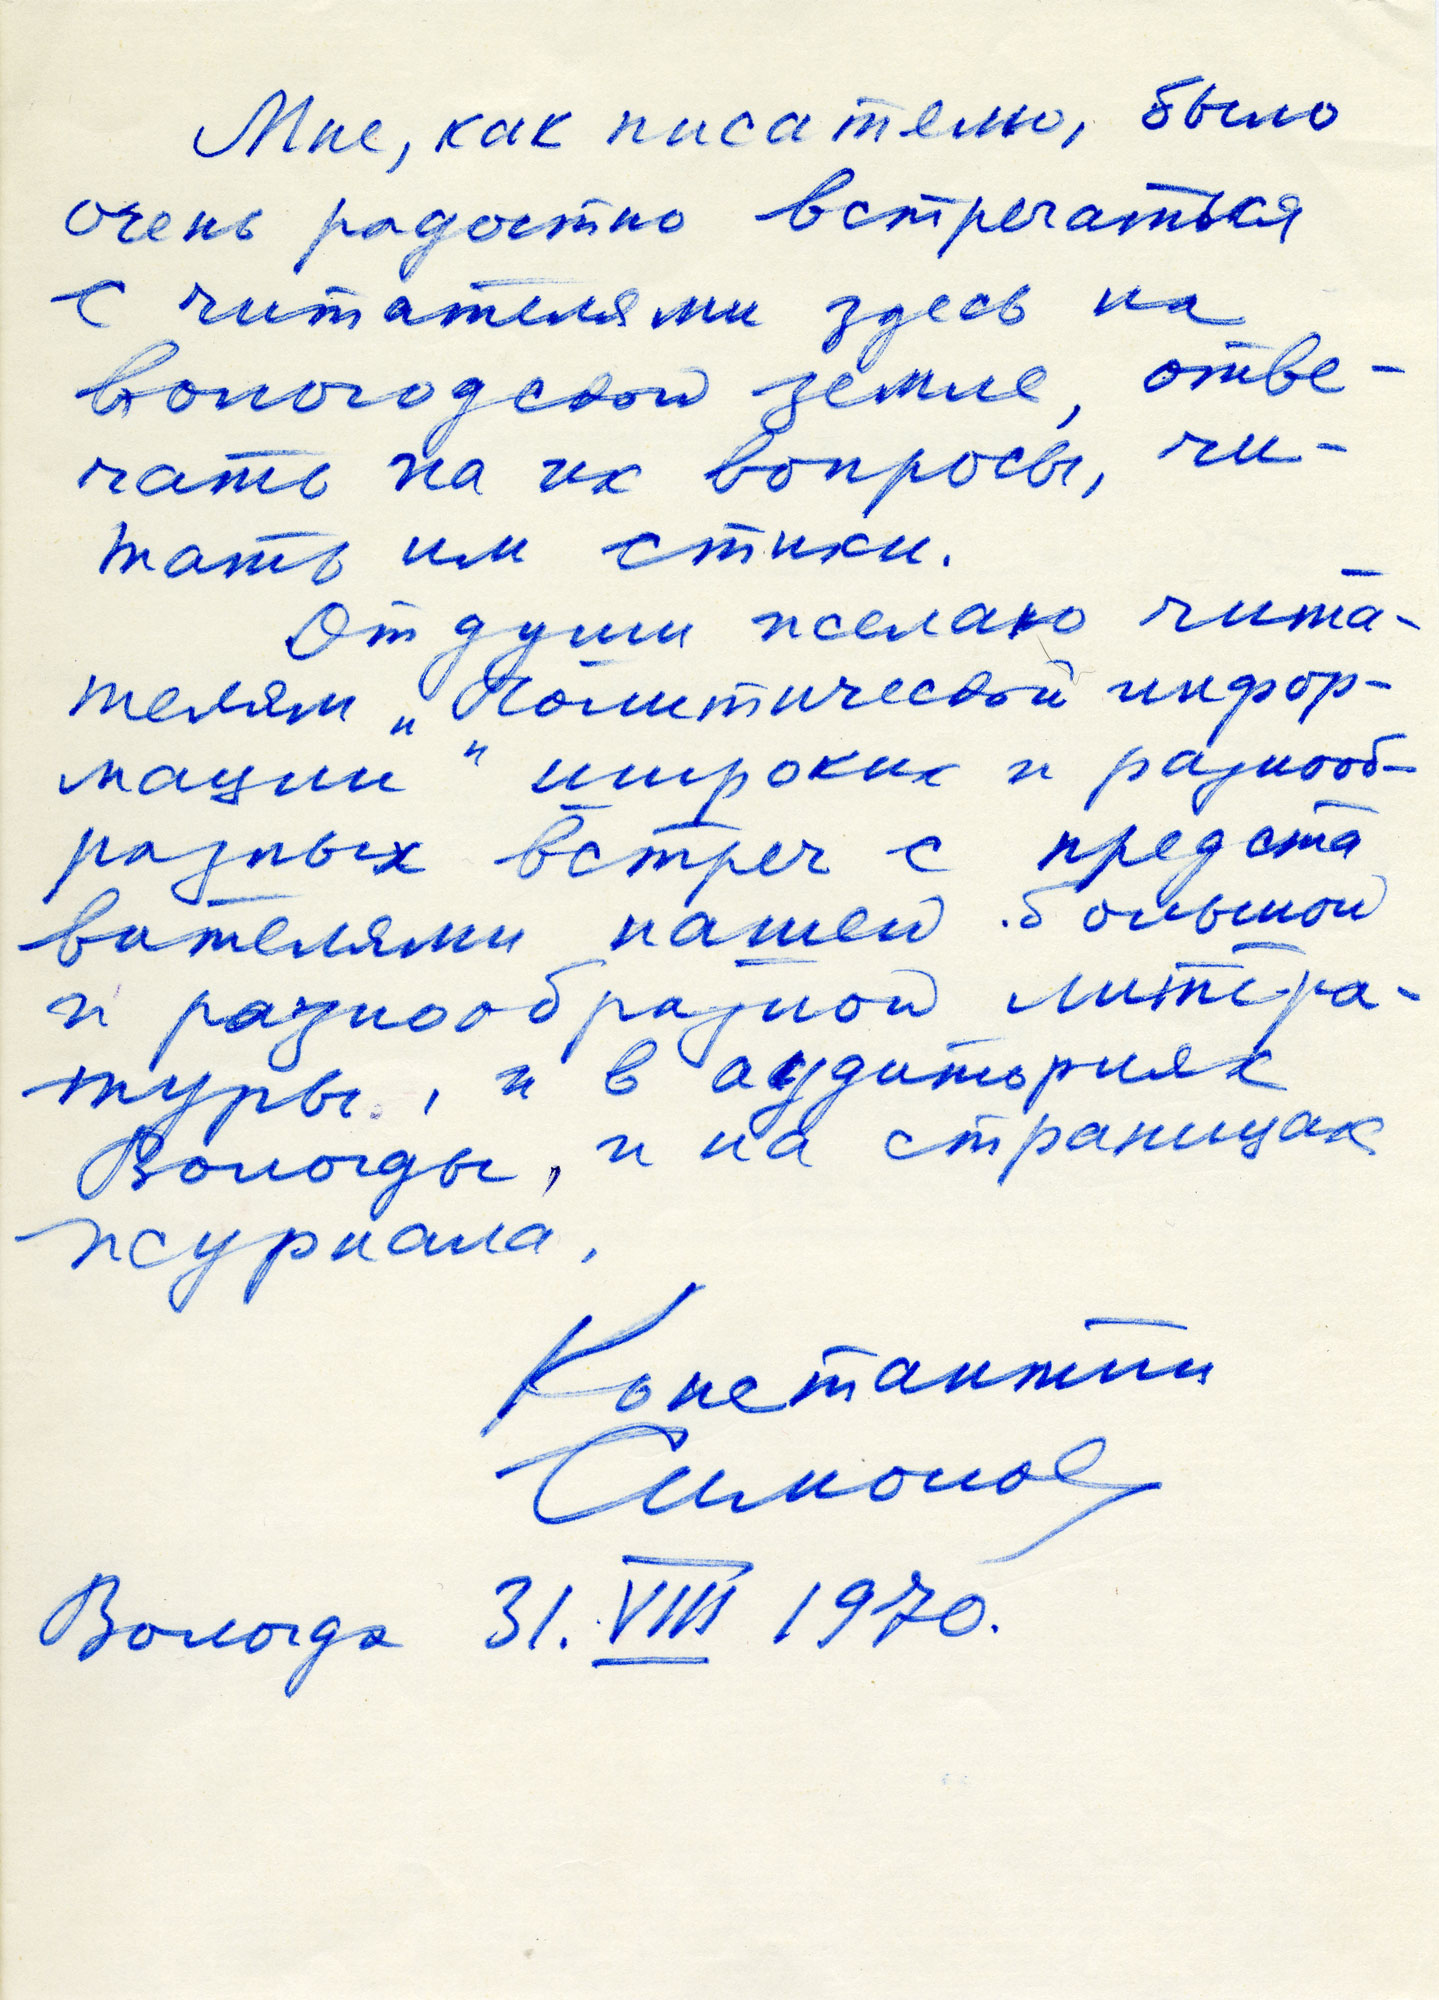 Мне, как писателю, было
очень радостно встречаться
с читателями здесь на
вологодской земле, отве-
чать на их вопросы, чи-
тать им стихи.
От души желаю чита-
телям „Политической инфор-
мации" широких и разнооб-
разных встреч с предста
вителями нашей большой
и разнообразной литера-
туры, и в аудиториях
Вологды, и на страницах
журнала.
Константин
Симонов
Вологда 31. VIII 1970.